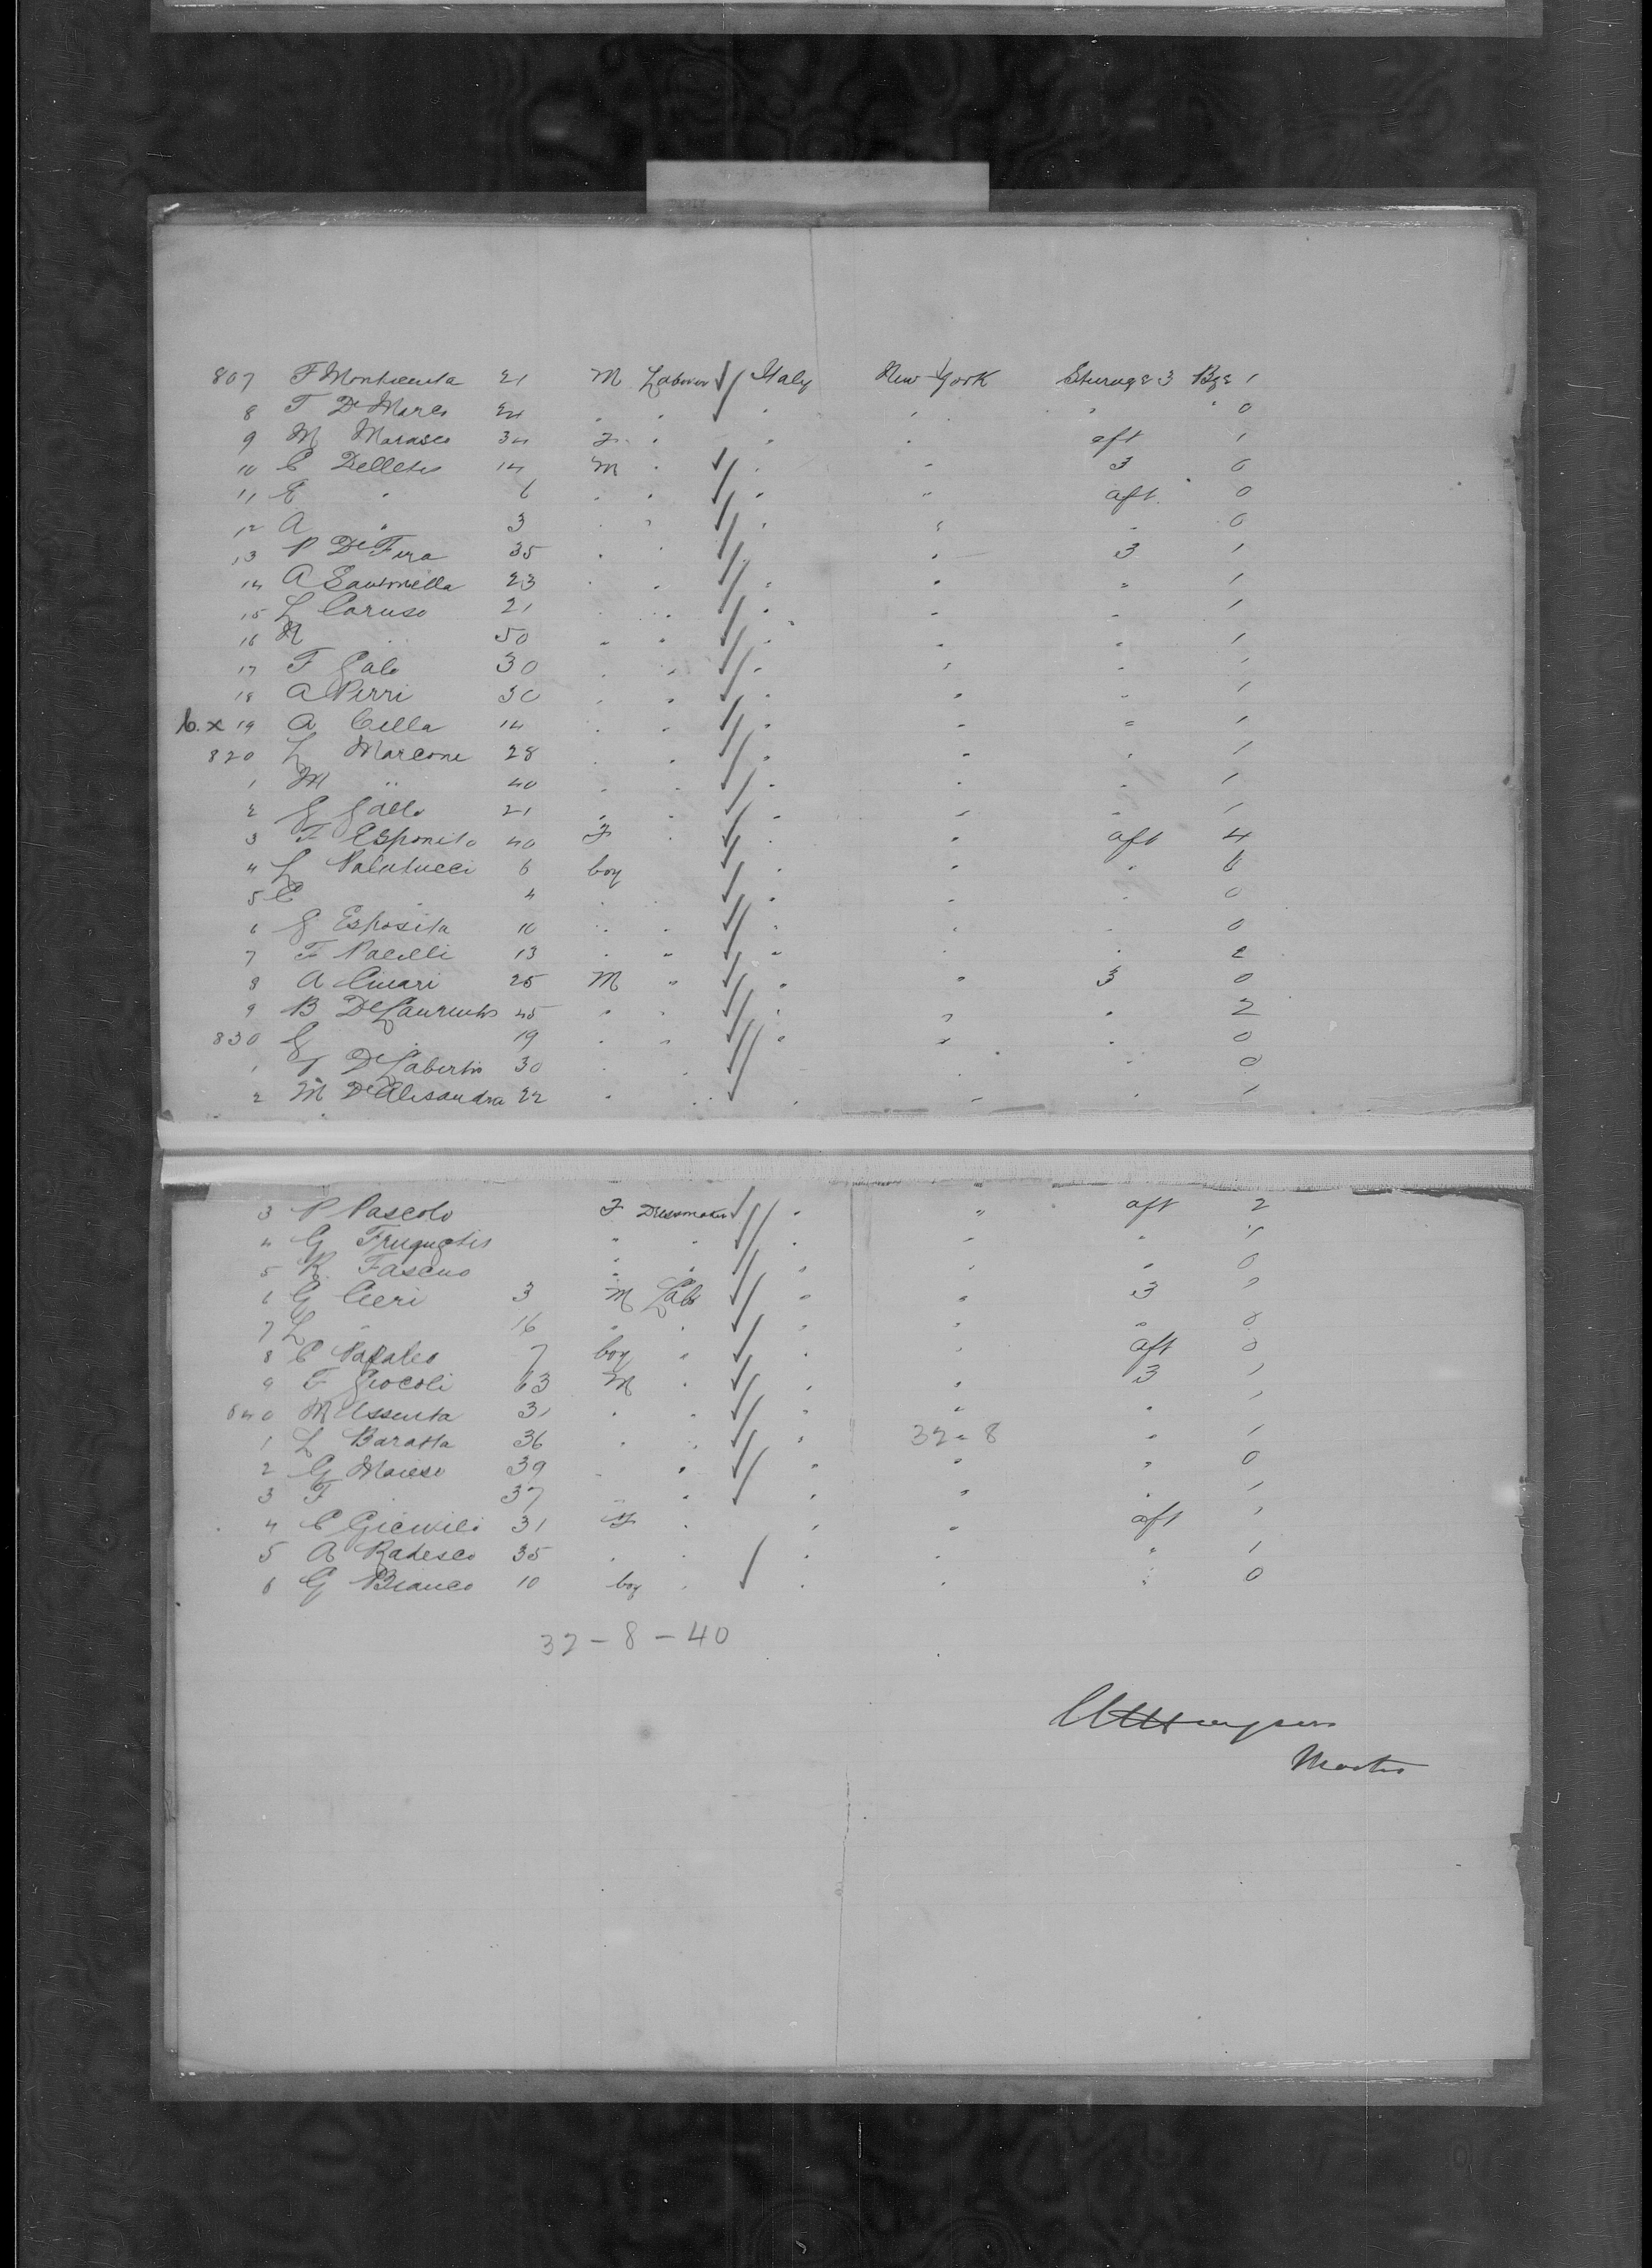 807 F 21 M Laborer Italy New York Steerage 3 Bge 1
8 F De Marco 24 " " " " " " 0
9 M Marasco 34 F " " " aft 1
10 C Delletis 14 M " " " 3 0
11 E " 6 " " " " aft 0
12 A " 3 " " " " " 0
13 P De Fera 35 " " " " 3 1
14 A 23 " " " " " 1
15 L Caruso 21 " " " " " 1
16 N " 50 " " " " " 1
17 F Galo 30 " " " " " 1
18 A Perri 30 " " " " " 1
b. x 19 A Cella 14 " " " " " 1
820 L Marcone 28 " " " " " 1
1 M " 40 " " " " " 1
2 G Gallo 21 " " " " " 1
3 F Esponito 40 F " " " aft 4
4 L Palutucci 6 boy " " " 6
5 C " 4 " " " " 0
6 G Esposita 10 " " " " " 0
7 F Pacelli 13 " " " " " 2
8 A 25 M " " " 3 0
9 B De Laurentis 45 " " " " " 2
830 G " 19 " " " " " 0
1 De Labertis 30 " " " " 0
2 M De Alesandra 22 " " " " " 1
3 P Pascolo F Dressmaker " " aft 2
4 G " " " " "
5 R. Fasceno " " " " " 0
6 G Cieri 3 M Lab " " 3
7 L " 16 " " " " " 0
8 C 7 boy " " " aft 0
9 F Giocoli 63 M " " " 3 1
840 M Assenta 31 " " " " " 1
1 L Baratta 36 " " " 32-8 " 1
2 G 39 " " " " " 0
3 F " 37 " " " " " 1
4 C 31 F " " " aft 1
5 A Radesco 35 " " " " " 1
6 G Bianco 10 boy " " " " 0
32-8-40
Master